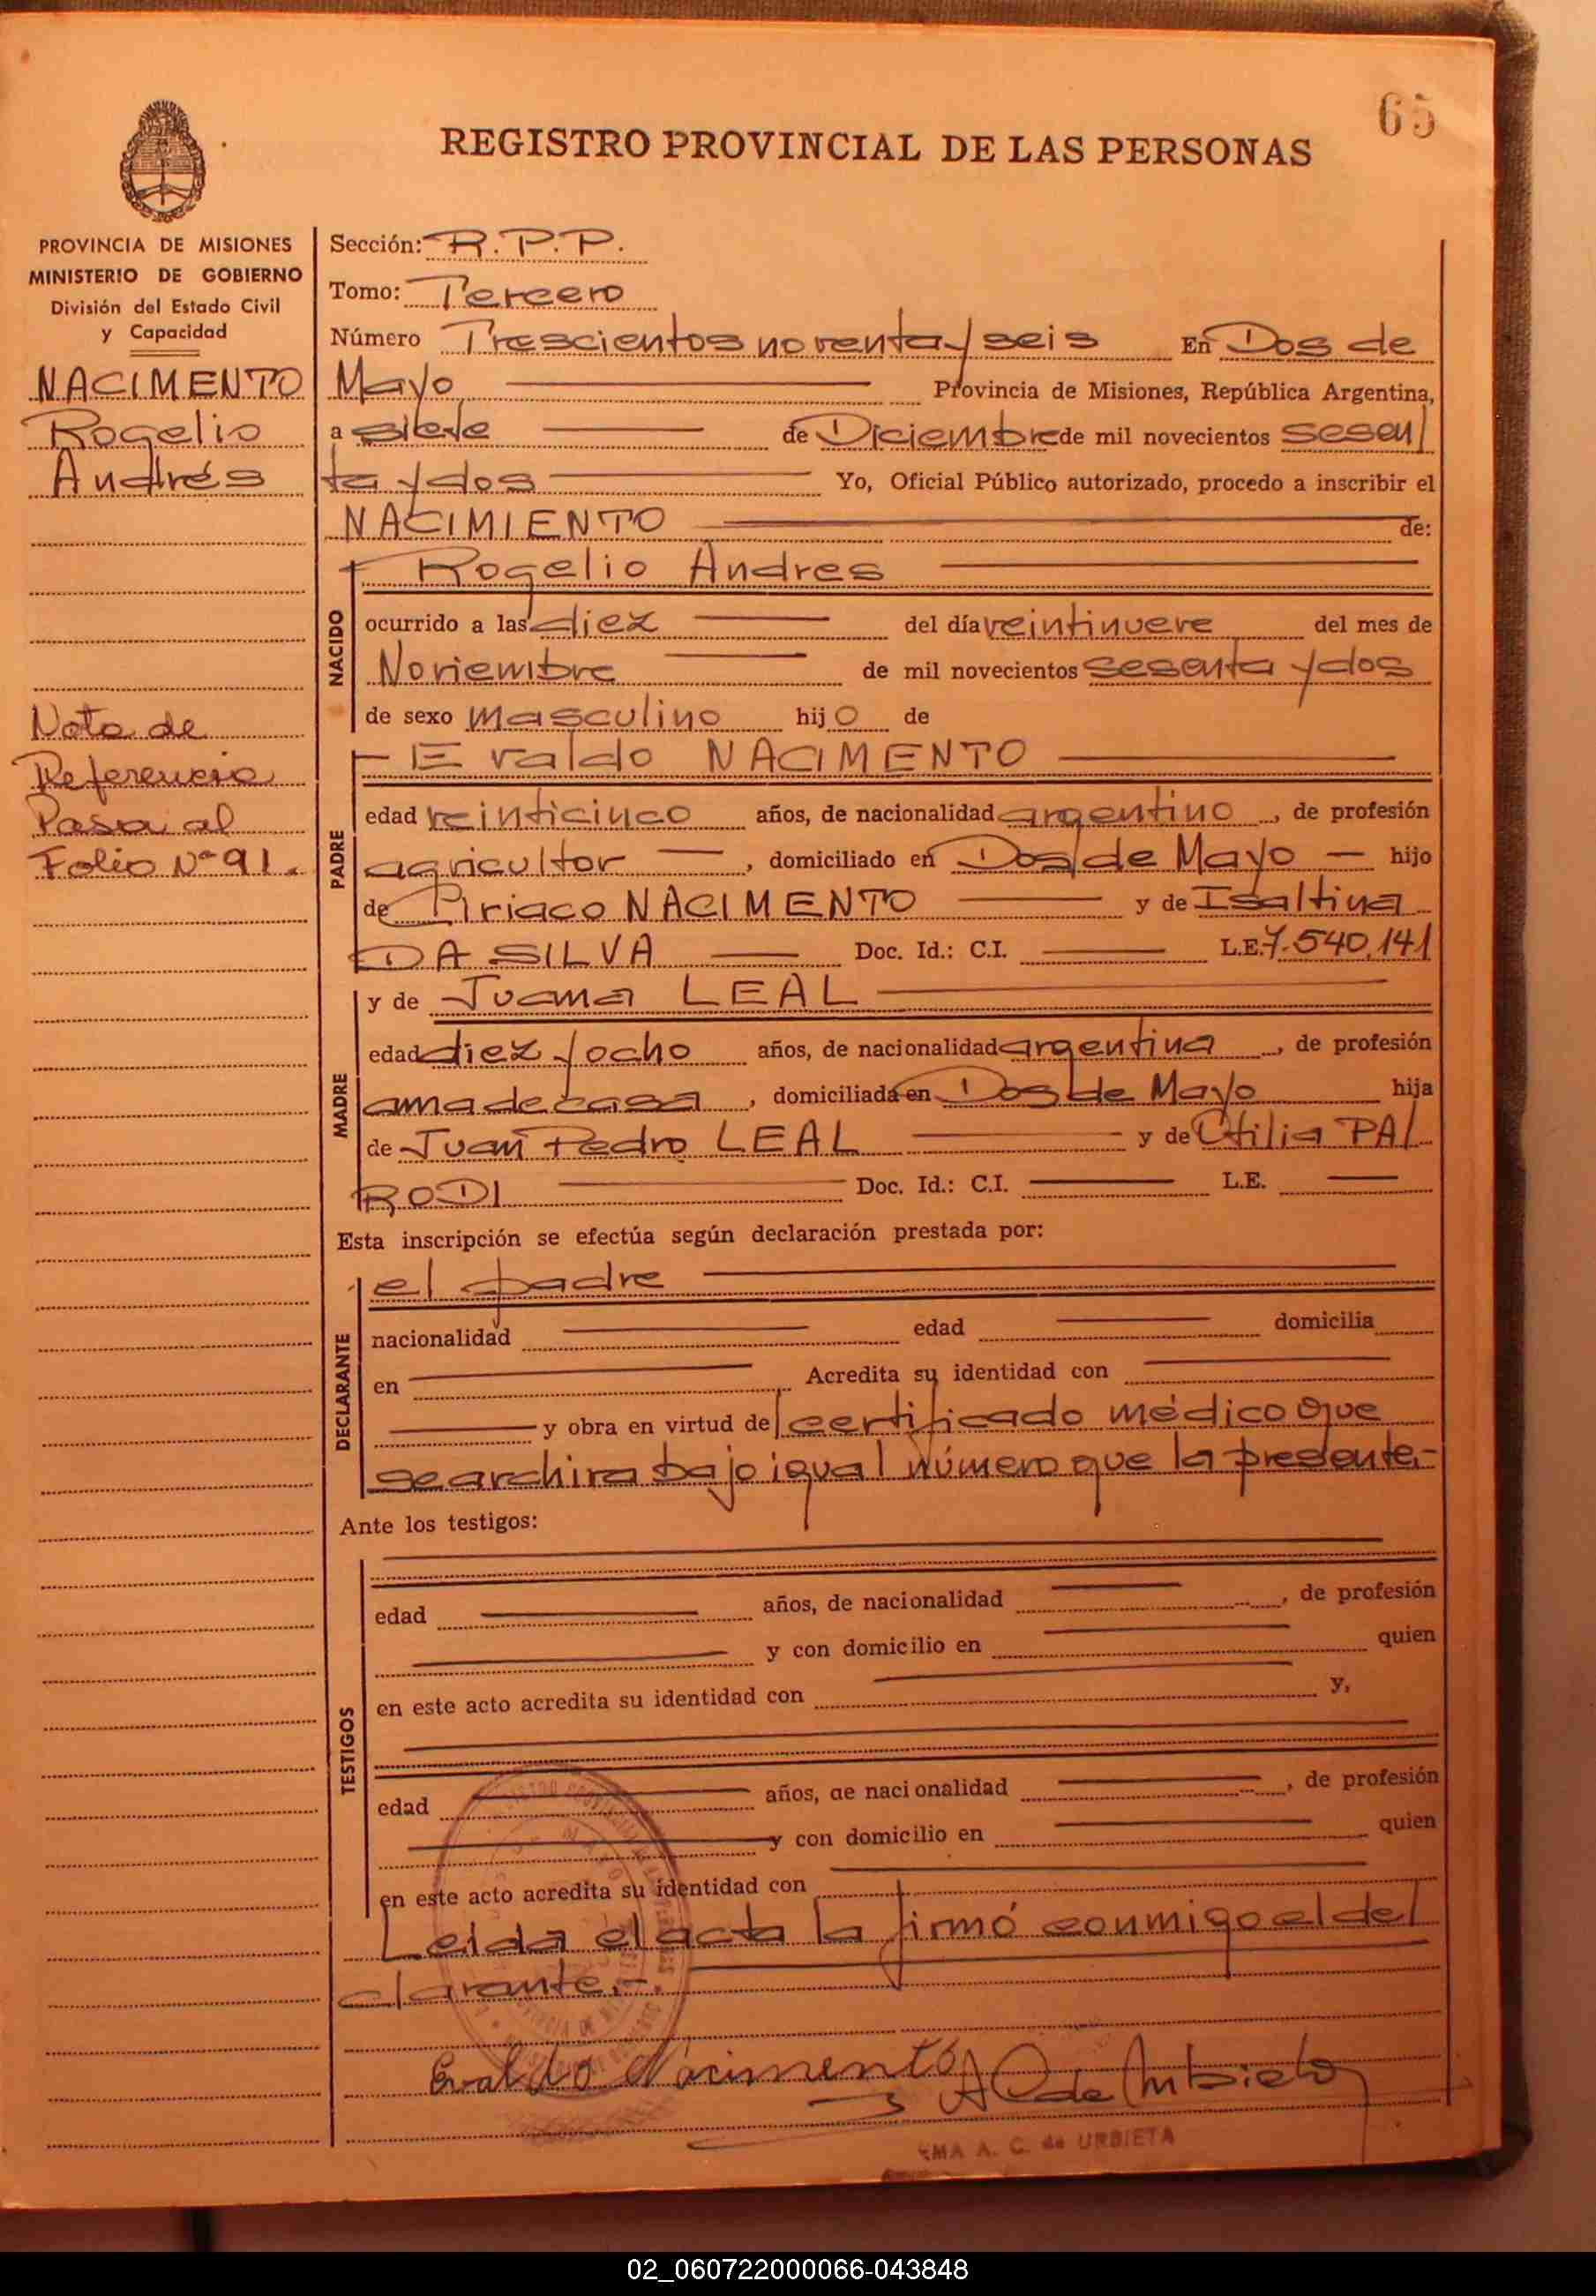 65
REGISTRO PROVINCIAL DE LAS PERSONAS
PROVINCIA DE MISIONES
MINISTERIO DE GOBIERNO
División del Estado Civil
y Capacidad
NACIMENTO
Rogelio
Andrés
Nota de
Referencia
Pasa al
Folio Nº 91.
Sección: R.P.P.
Tomo: Tercero
Número Trescientos noventa y seis En Dos de
Mayo Provincia de Misiones, República Argentina,
a siete de Diciembre de mil novecientos sesen
ta y dos Yo, Oficial Público autorizado, procedo a inscribir el
NACIMIENTO de:
NACIDO
Rogelio Andres
ocurrido a las diez del día veintinueve del mes de
Noviembre de mil novecientos sesenta y dos
de sexo masculino hijo de
PADRE
Evaldo NACIMENTO
edad veinticinco años, de nacionalidad argentino, de profesión
agricultor, domiciliado en Dos de Mayo hijo
de Piriaco NACIMENTO y de Isaltina
DA SILVA Doc. Id.: C.I. L.E. 7.540.141
MADRE
y de Juana LEAL
edad diez y ocho años, de nacionalidad argentina, de profesión
ama de casa, domiciliada en Dos de Mayo hija
de Juan Pedro LEAL y de Otilia PA
RODI Doc. Id.: C.I. L.E.
Esta inscripción se efectúa según declaración prestada por:
DECLARANTE
el padre
nacionalidad edad domicilia
en Acredita su identidad con
y obra en virtud de certificado médico que
se archiva bajo igual número que la presente.-
Ante los testigos:
TESTIGOS
edad años, de nacionalidad, de profesión
y con domicilio en quien
en este acto acredita su identidad con y,
edad años, de nacionalidad, de profesión
y con domicilio en quien
en este acto acredita su identidad con
Leida el acta la firmó conmigo el de
clarante.-
Evaldo Nacimento A C de Urbieta
A. C. de URBIETA
02_060722000066-043848